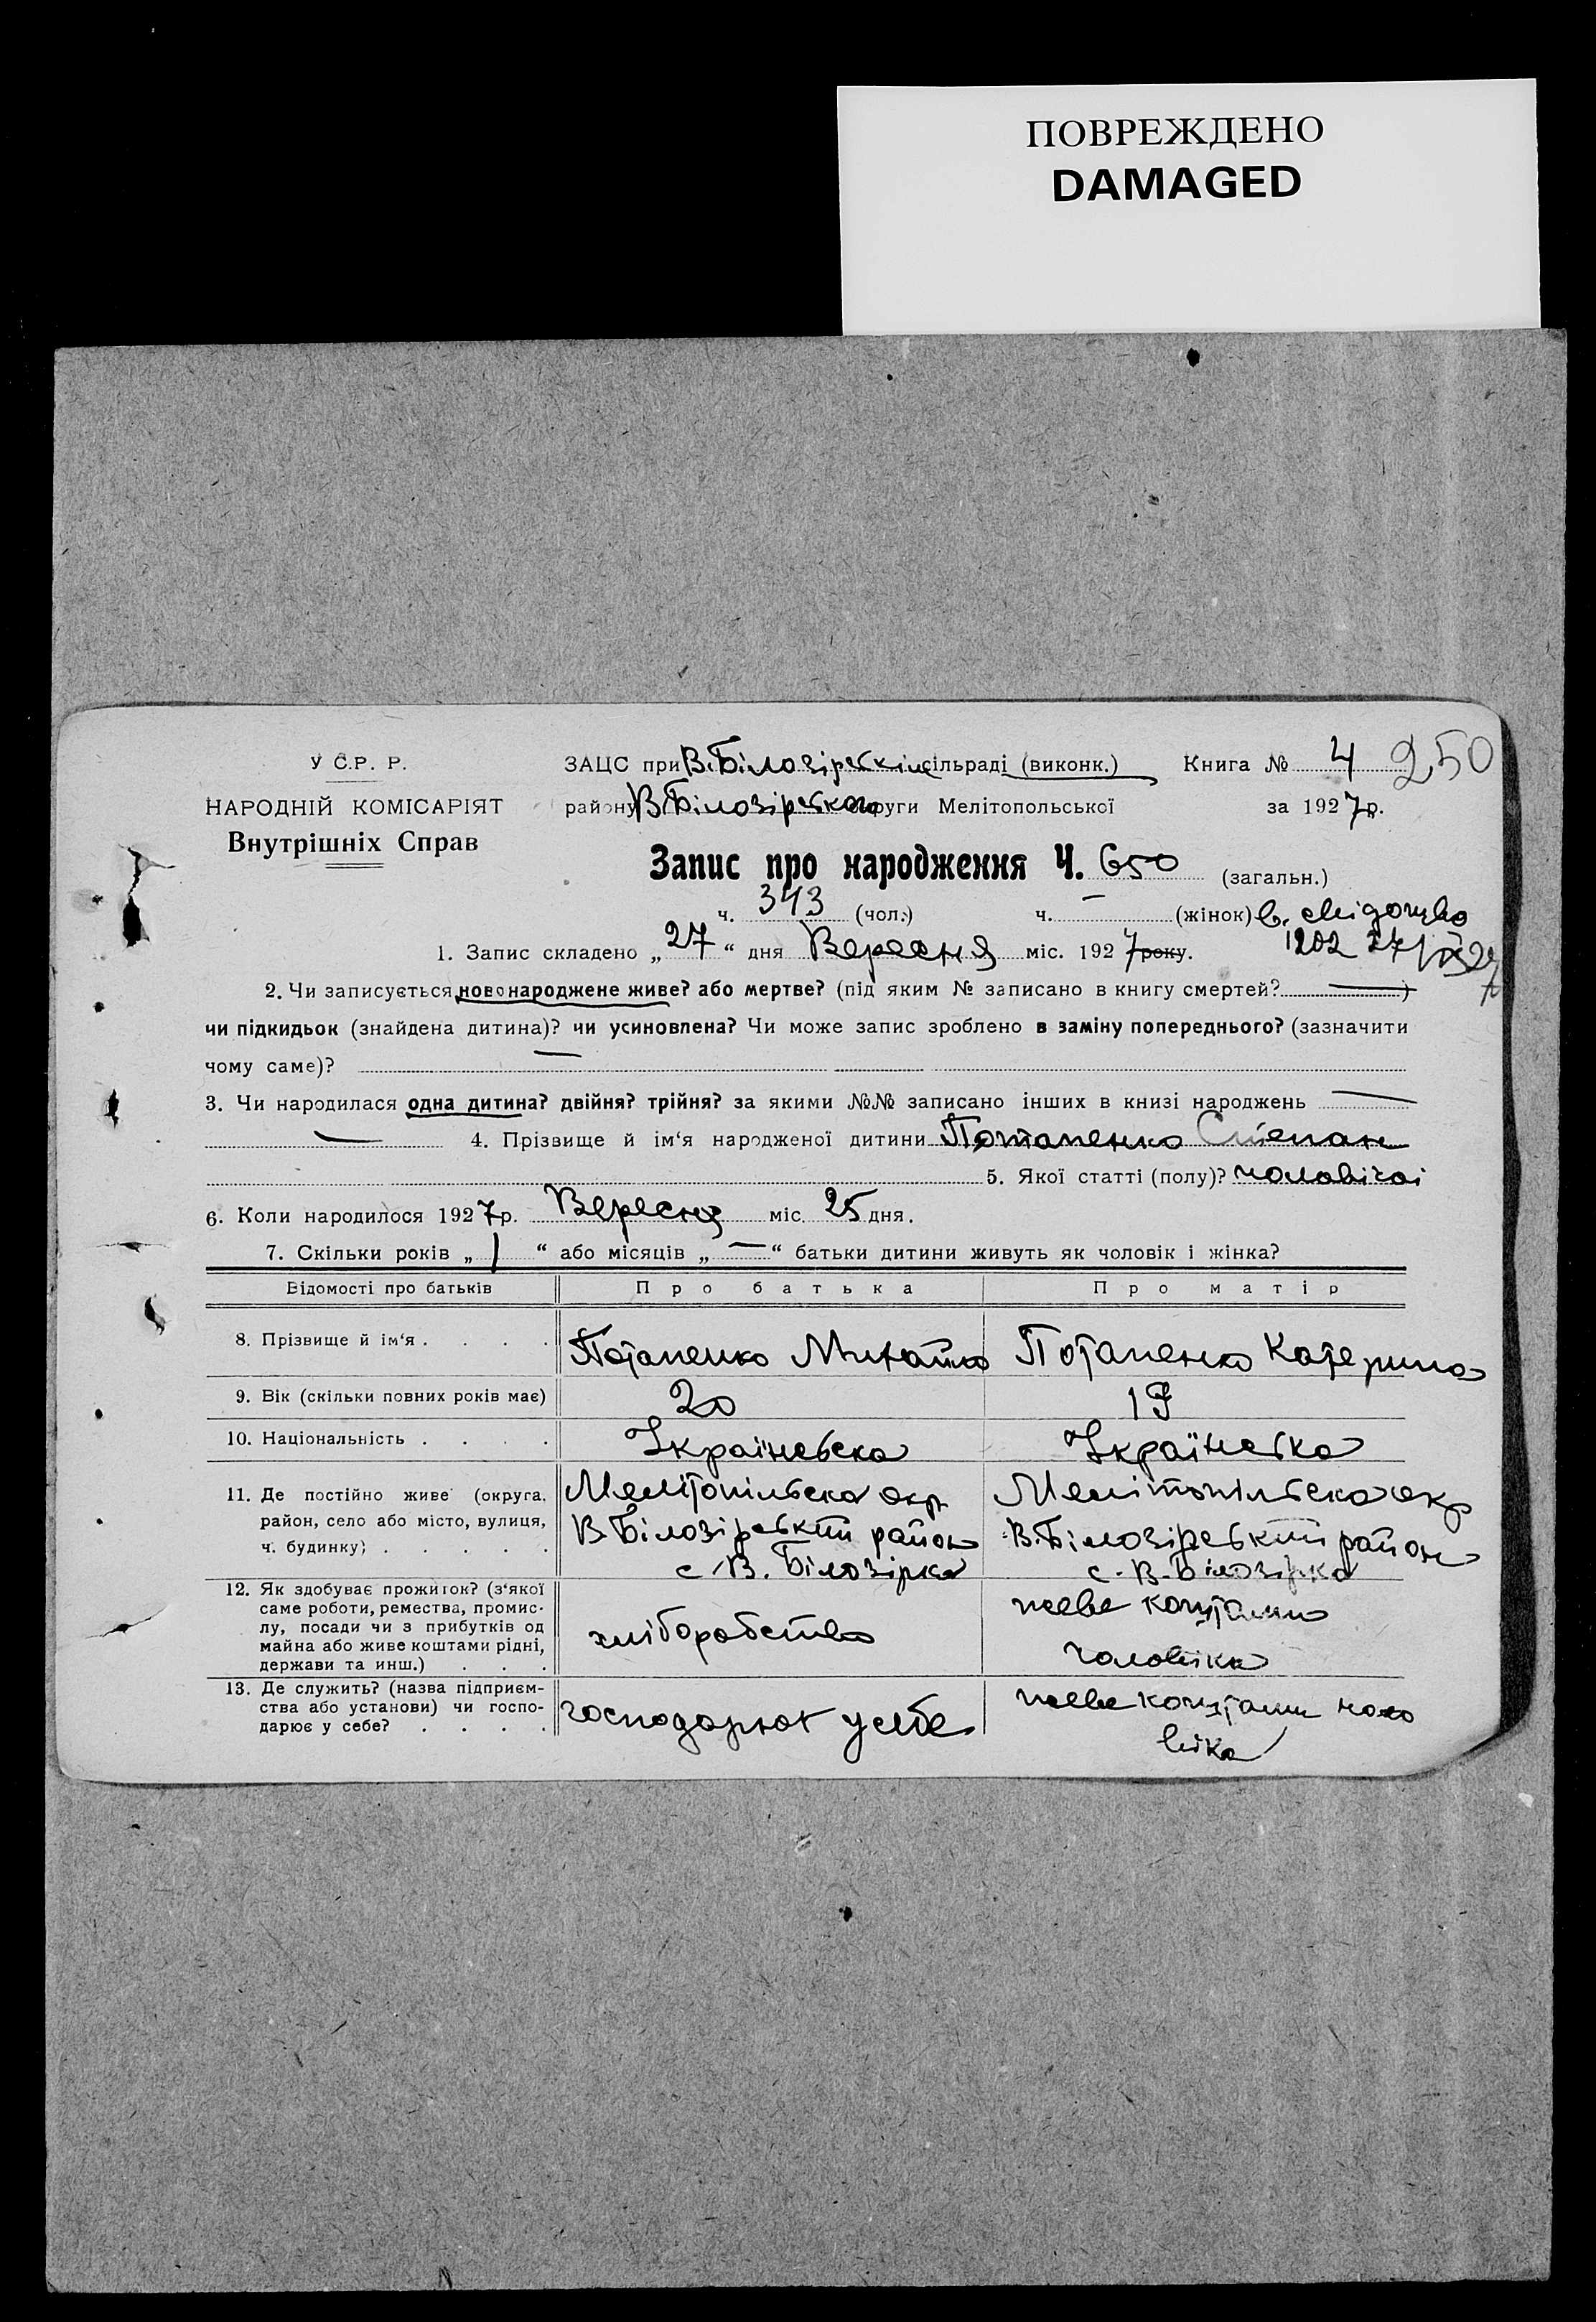 ПОВРЕЖДЕНО
DAMAGED
У С.Р. Р.
НАРОДНІЙ КОМІСАРІЯТ
Внутрішніх Справ
ЗАЦС при В.Білозірскім сільраді (виконк.) Книга № 4 250
району В.Білозірского округи Мелітопольської за 1927 р.
Запис про народження Ч. 650 (загальн.)
ч. 343 (чол.) ч. — (жінок)
1. Запис складено „ 27 “ дня Вересня міс. 1927 року. 1202 27/IX 27
2. Чи записується новонароджене живе? або мертве? (під яким № записано в книгу смертей? — )
чи підкидьок (знайдена дитина)? чи усиновлена? Чи може запис зроблено в заміну попереднього? (зазначити
чому саме)? —
3. Чи народилася одна дитина? двійня? трійня? за якими №№ записано інших в книзі народжень —
— 4. Прізвище й ім‘я народженої дитини Потапенко Степан
5. Якої статті (полу)? чоловічоі
6. Коли народилося 1927 р. Вересня міс. 25 дня.
7. Скільки років „ 1 “ або місяців „ — “ батьки дитини живуть як чоловік і жінка?
Відомості про батьків Про батька Про матір
8. Прізвище й ім‘я . . . . Потапенко Михайло Потапенко Катерина
9. Вік (скільки повних років має) 20 19
10. Національність . . . . Українська Українська
11. Де постійно живе (округа, район, село або місто, вулиця, ч. будинку) . . . . .
Мелітопільска окр Мелітопільска окр
В Білозірський район В.Білозірський район
с. В. Білозірка с. В. Білозірка
12. Як здобуває прожиток? (з‘якої
саме роботи, ремества, промис-
лу, посади чи з прибутків од
майна або живе коштами рідні,
держави та инш.) . . .
хліборобство живе коштами
чоловіка
13. Де служить? (назва підприєм-
ства або установи) чи госпо-
дарює у себе? . . . .
господарює у себе живе коштами чоло
віка